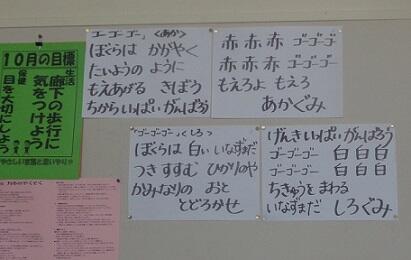 10月の目標
生活
廊下の歩行に
気をつけよう
保健
目を大切にしよう
ゴーゴーゴー <あか>
ぼくらは かがやく
たいようの ように
もえあがる きぼう
ちからいっぱい がんばろう
赤 赤 赤 ゴーゴーゴー
赤 赤 赤 ゴーゴーゴー
もえろよ もえろ
あかぐみ
"ゴーゴーゴー"<しろ>
ぼくらは 白い いなずまだ
つき すすむ ひかりのや
かみなりの おと
とどろかせ
げんきいっぱい がんばろう
ゴーゴーゴー 白 白 白
ゴーゴーゴー 白 白 白
ちきゅうを まわる
いなずまだ しろぐみ